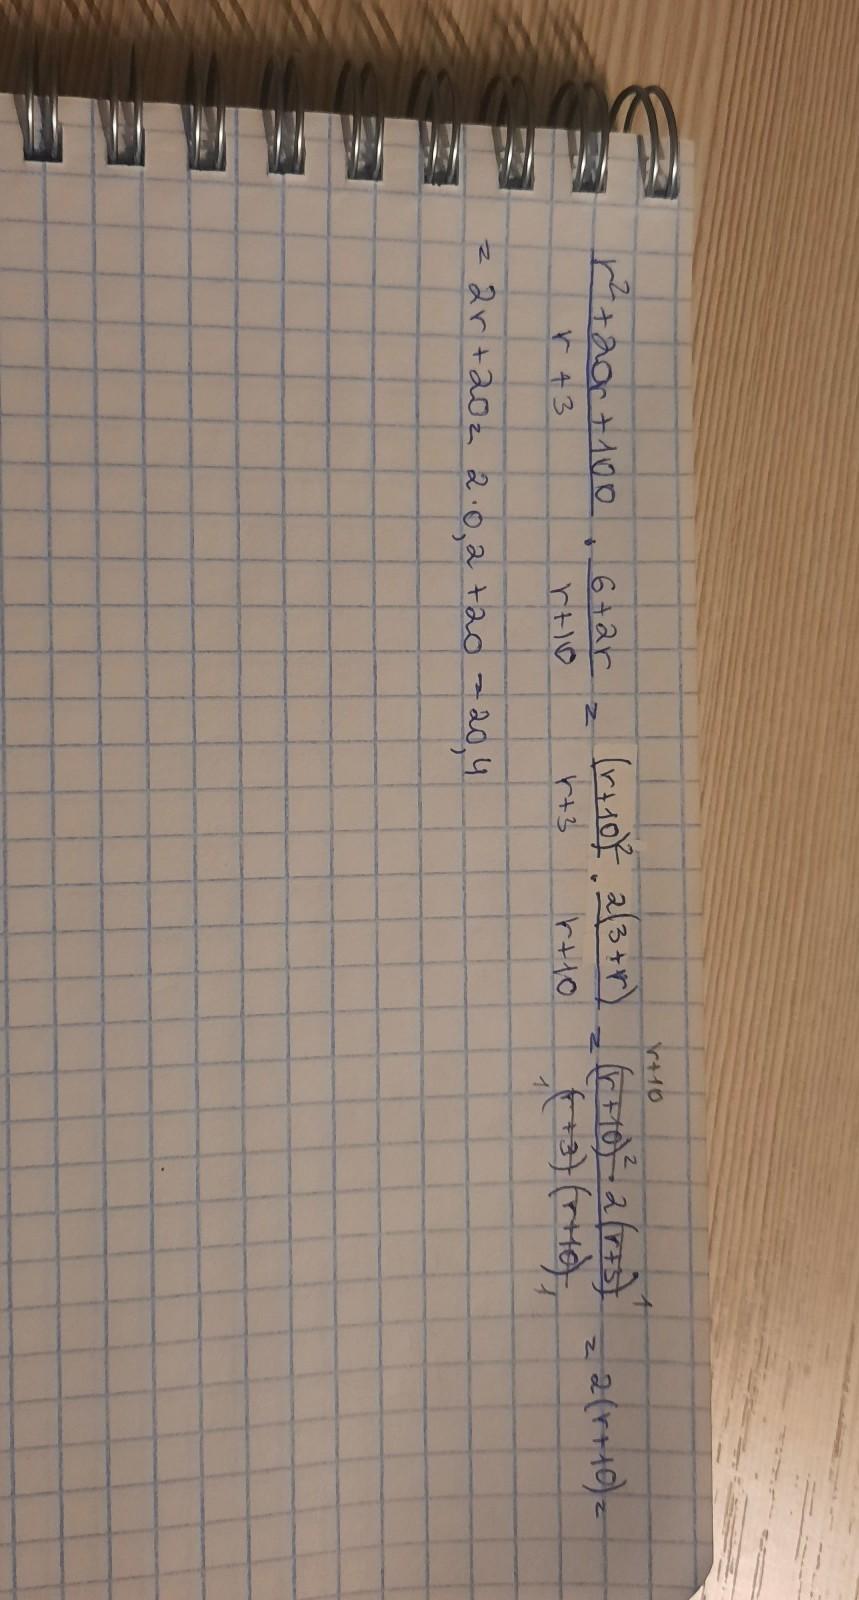 r+10
r²+20r+100 / r+3 · 6+2r / r+10 = (r+10)² / r+3 · 2(3+r) / r+10 = (r+10)² · 2(r+3) 1 / 1 (r+3) (r+10) 1 = 2(r+10) =
= 2r+20 = 2·0,2+20 = 20,4